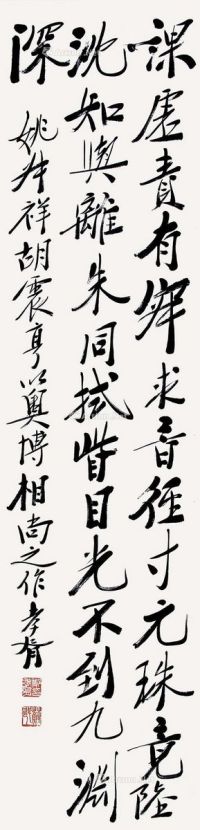 課虛責有求音徑寸元珠竟陸
沈知與離朱同拭眥目光不到九淵
深
姚叔祥胡震亨以奧博相尚之作 孝胥